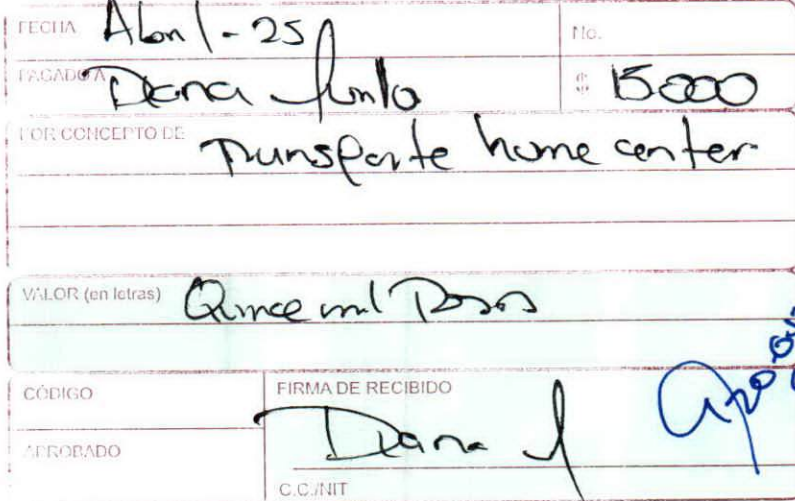 FECHA Abril - 25 No.
PAGADO A Diana $ 15000
POR CONCEPTO DE Transporte home center
VALOR (en letras) Quince mil Pesos
CÓDIGO FIRMA DE RECIBIDO
Diana
APROBADO
C.C./NIT